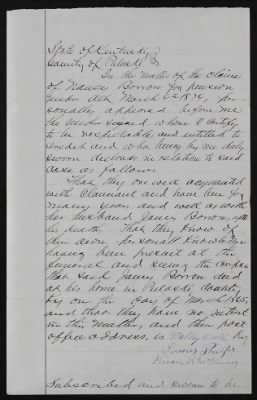 State of Kentucky
County of Pulaski
In the matter of the claim
of Nancy Borron for pension
under Act March
personally appeared before me
the undersigned whom I certify
to be respectable and entitled to
credit and who being by me duly
sworn declares in relation to said
case as follows
That they are well acquainted
with Claimant and have been for
many years and well as with
her husband James Borron, up to
his death. That they know of
their own personal knowledge
having been present at the
funeral and seeing the corpse
that said James Borron died
at his home in Pulaski County
Ky on the day of March
and that they have no interest
in this matter, and their post
office address, is
James
Subscribed and sworn to be